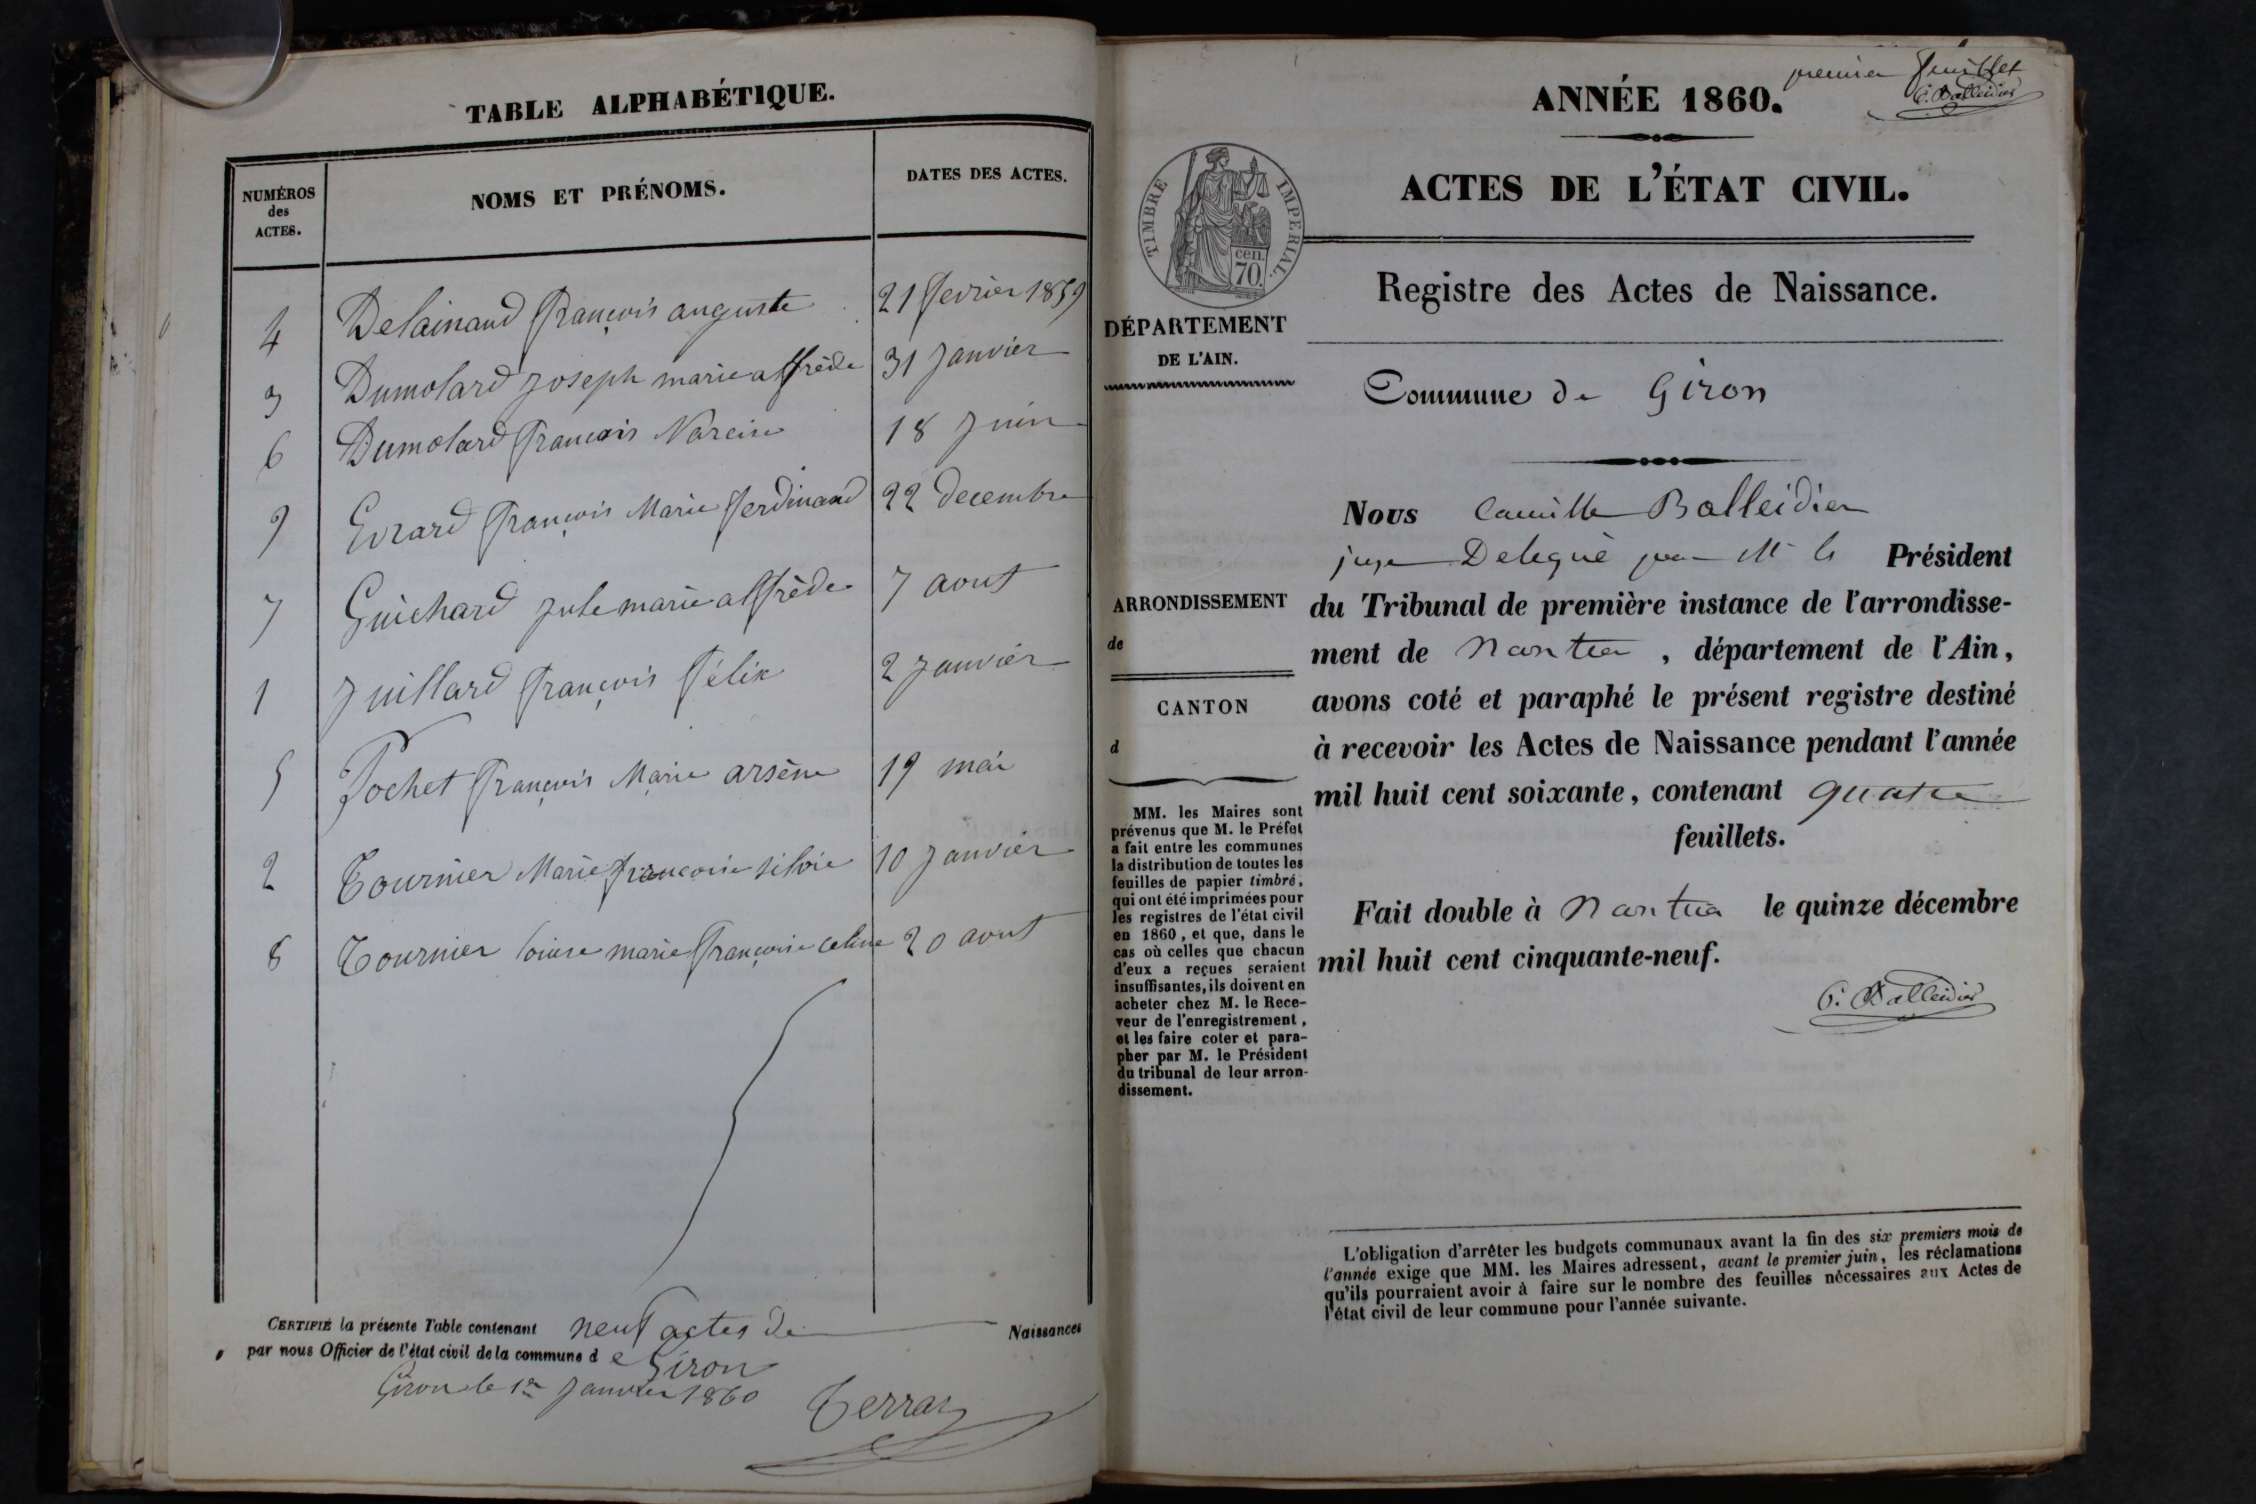 TABLE ALPHABÉTIQUE.
NUMÉROS
des
ACTES.
NOMS ET PRÉNOMS.
DATES DES ACTES.
4 Delainaud françois auguste 21 fevrier 1859
3 Dumolard joseph marie alfrède 31 janvier
6 Dumolard françois Narcise 18 juin
9 Evrard françois Marie ferdinand 22 decembre
7 Guichard jule marie alfrède 7 aout
1 Juillard françois félix 2 janvier
5 Pochet françois Marie arsène 19 mai
2 Tournier Marie françoise silvie 10 janvier
8 Tournier louise marie françoise celine 20 aout
CERTIFIÉ la présente Table contenant neuf actes de Naissances
par nous Officier de l'état civil de la commune d e Giron
Giron le 1er janvier 1860
Terraz
premier feuillet
C. Balleidier
ANNÉE 1860.
ACTES DE L'ÉTAT CIVIL.
TIMBRE IMPERIAL.
cen.
70.
Registre des Actes de Naissance.
DÉPARTEMENT
DE L'AIN.
Commune de Giron
Nous Camille Balleidier
juge Delegué par Mr le Président
du Tribunal de première instance de l'arrondisse-
ment de Nantua , département de l'Ain,
avons coté et paraphé le présent registre destiné
à recevoir les Actes de Naissance pendant l'année
mil huit cent soixante, contenant quatre
feuillets.
Fait double à Nantua le quinze décembre
mil huit cent cinquante-neuf.
C. Balleidier
ARRONDISSEMENT
de
CANTON
d
MM. les Maires sont
prévenus que M. le Préfet
a fait entre les communes
la distribution de toutes les
feuilles de papier timbré,
qui ont été imprimées pour
les registres de l'état civil
en 1860, et que, dans le
cas où celles que chacun
d'eux a reçues seraient
insuffisantes, ils doivent en
acheter chez M. le Rece-
veur de l'enregistrement,
et les faire coter et para-
pher par M. le Président
du tribunal de leur arron-
dissement.
L'obligation d'arrêter les budgets communaux avant la fin des six premiers mois de
l'année exige que MM. les Maires adressent, avant le premier juin, les réclamations
qu'ils pourraient avoir à faire sur le nombre des feuilles nécessaires aux Actes de
l'état civil de leur commune pour l'année suivante.